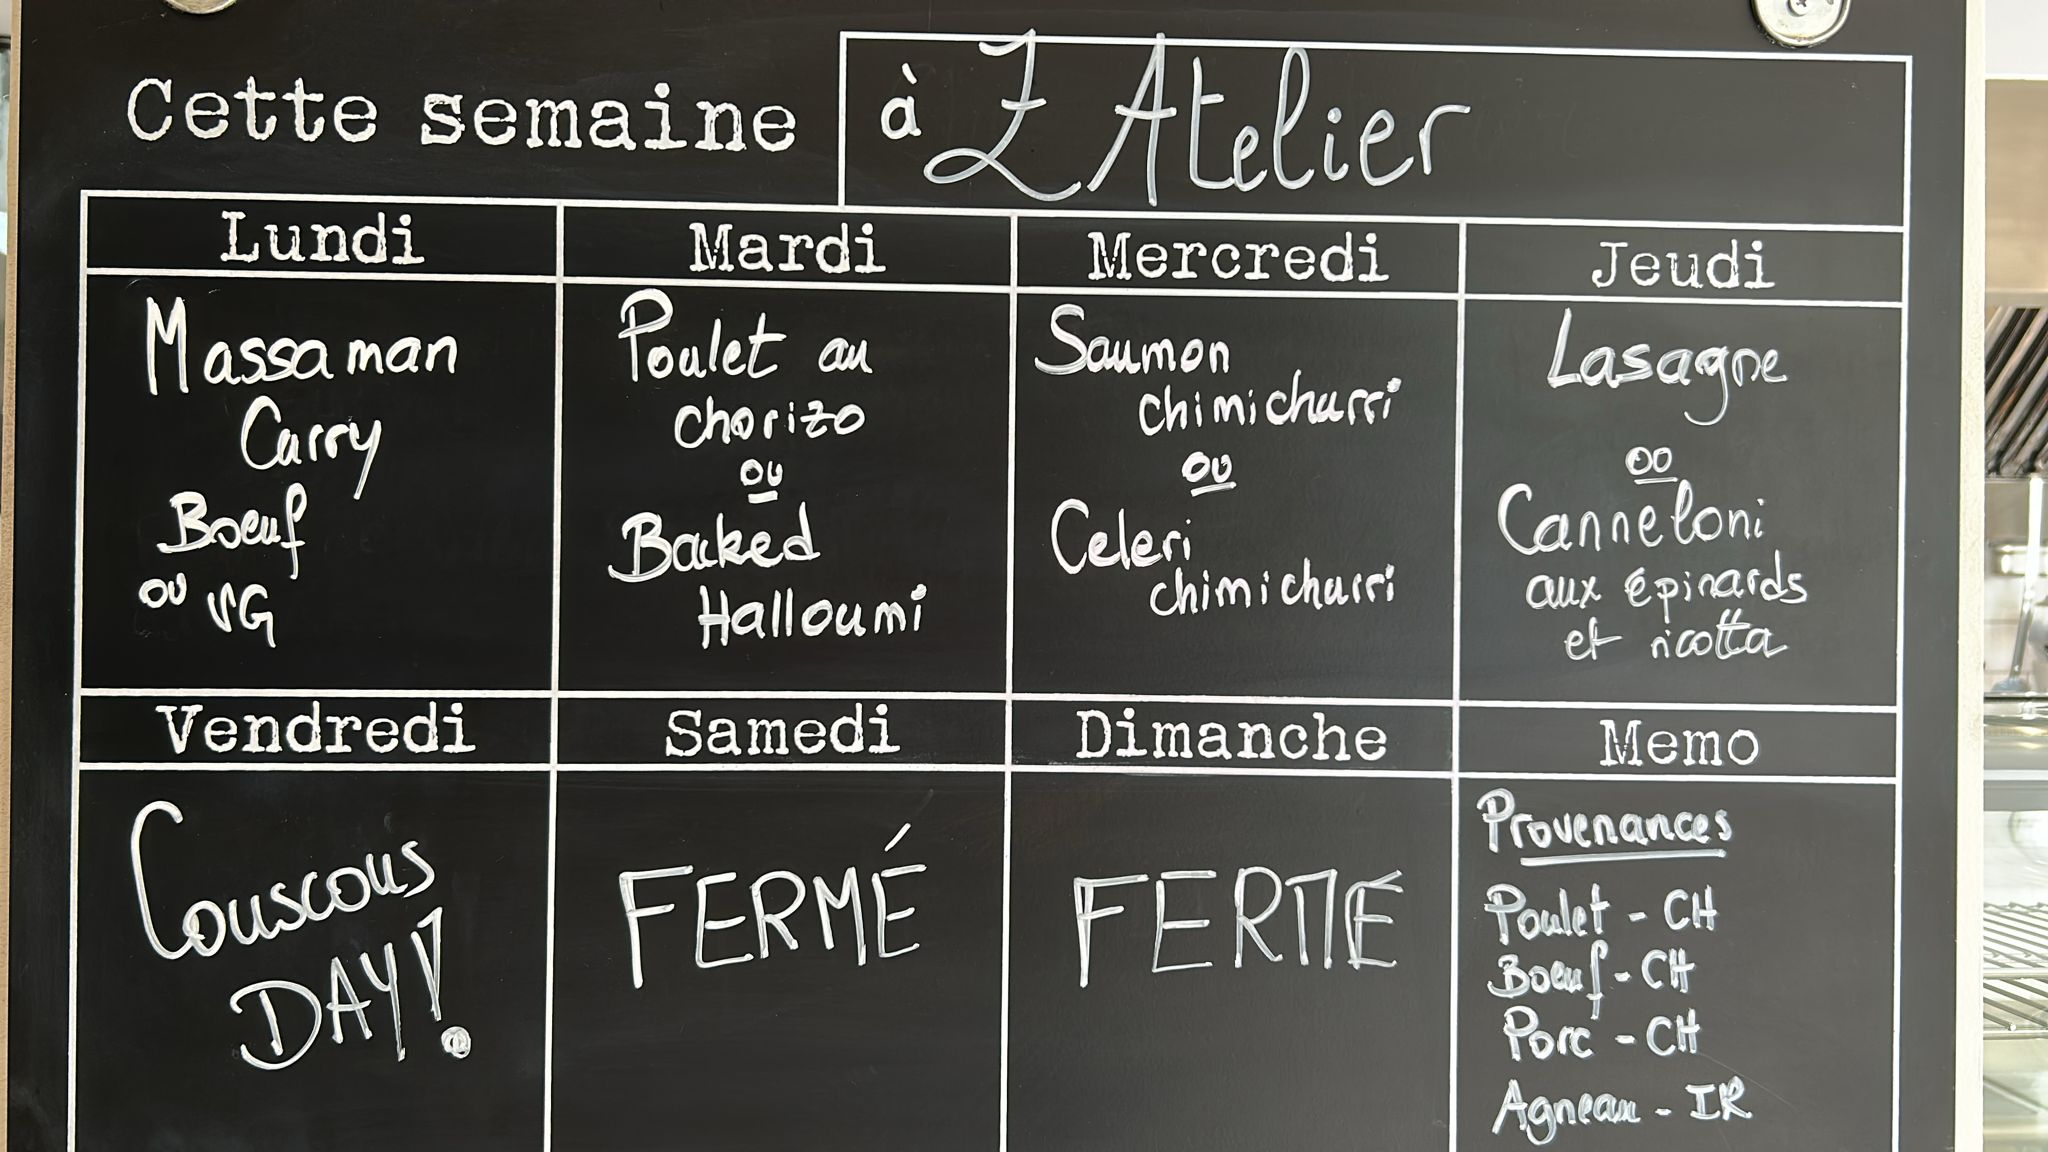 Cette semaine à L'Atelier
Lundi
Massaman
Curry
Boeuf
ou VG
Mardi
Poulet au
chorizo
ou
Backed
Halloumi
Mercredi
Saumon
chimichurri
ou
Celeri
chimichurri
Jeudi
Lasagne
ou
Canneloni
aux épinards
et ricotta
Vendredi
Couscous
DAY!
Samedi
FERMÉ
Dimanche
FERMÉ
Memo
Provenances
Poulet - CH
Boeuf - CH
Porc - CH
Agneau - IR